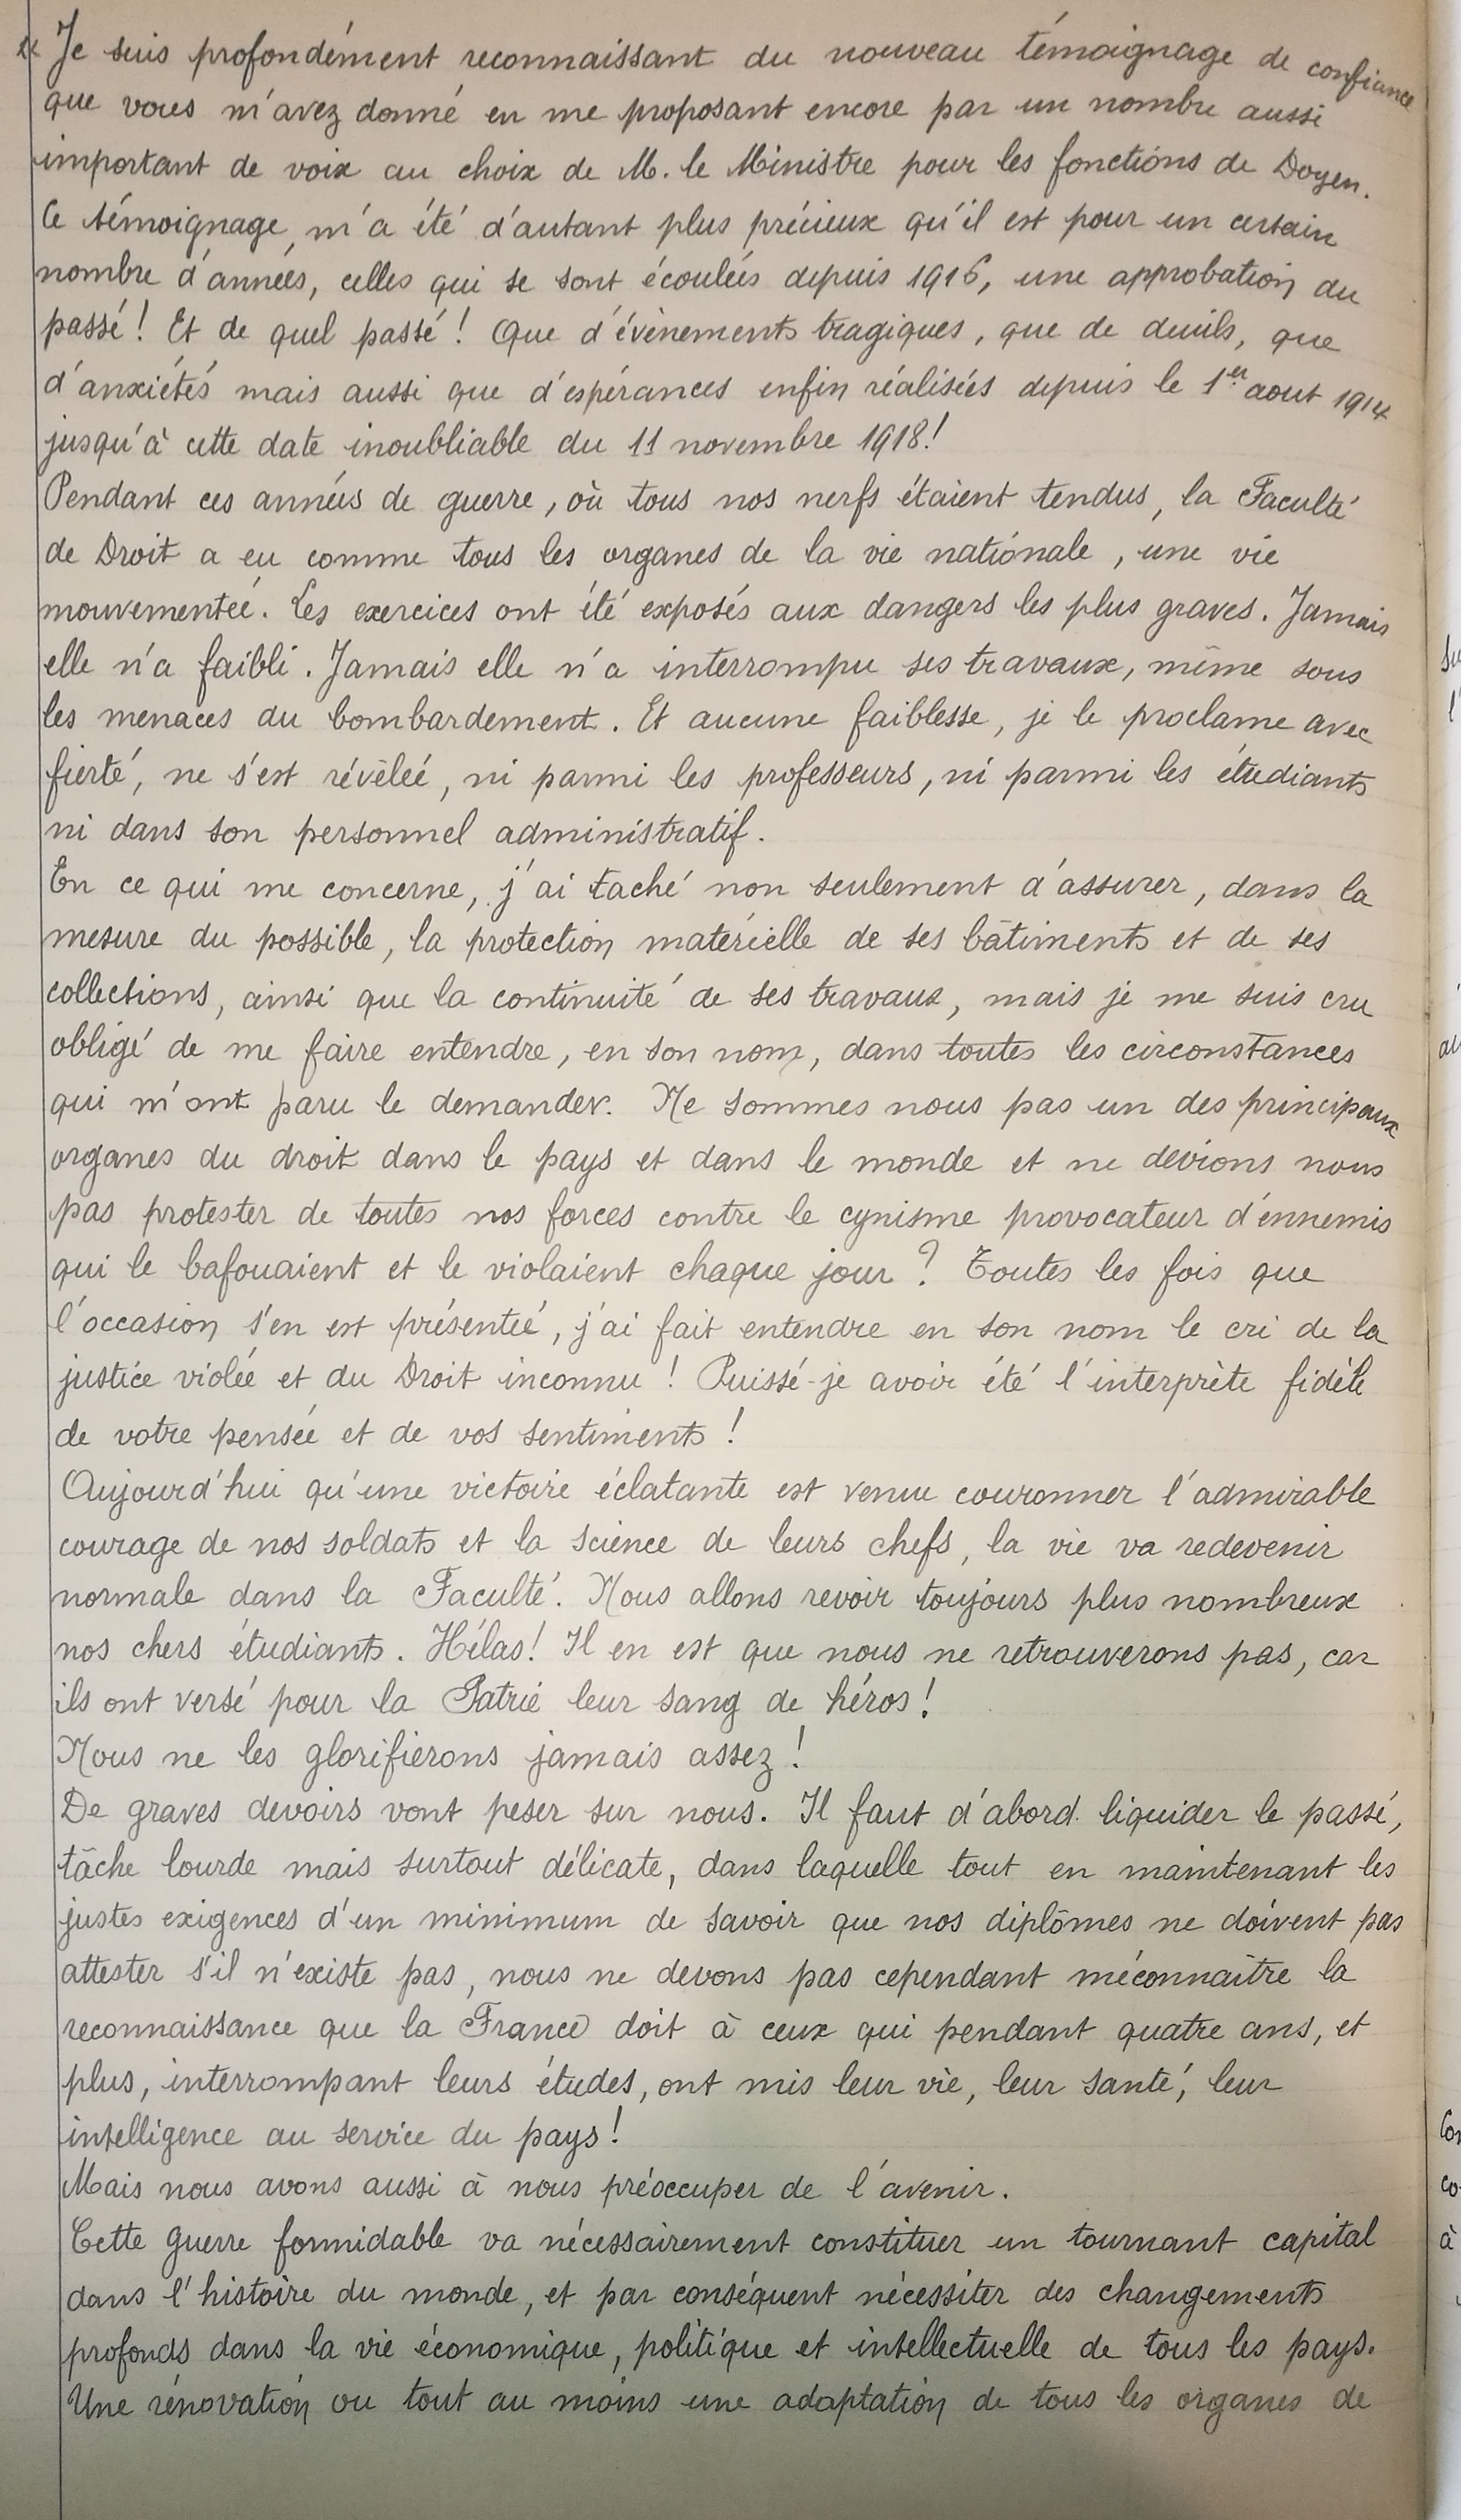 « Je suis profondément reconnaissant du nouveau témoignage de confiance
que vous m'avez donné en me proposant encore par un nombre aussi
important de voix au choix de M. le Ministre pour les fonctions de Doyen.
Ce témoignage, m'a été d'autant plus précieux qu'il est pour un certain
nombre d'années, celles qui se sont écoulées depuis 1916, une approbation du
passé ! Et de quel passé ! Que d'évènements tragiques, que de deuils, que
d'anxiétés mais aussi que d'espérances enfin réalisées depuis le 1er aout 1914
jusqu'à cette date inoubliable du 11 novembre 1918 !
Pendant ces années de guerre, où tous nos nerfs étaient tendus, la Faculté
de Droit a eu comme tous les organes de la vie nationale, une vie
mouvementée. Les exercices ont été exposés aux dangers les plus graves. Jamais
elle n'a faibli. Jamais elle n'a interrompu ses travaux, même sous
les menaces du bombardement. Et aucune faiblesse, je le proclame avec
fierté, ne s'est révélée, ni parmi les professeurs, ni parmi les étudiants
ni dans son personnel administratif.
En ce qui me concerne, j'ai taché non seulement d'assurer, dans la
mesure du possible, la protection matérielle de ses bâtiments et de ses
collections, ainsi que la continuité de ses travaux, mais je me suis cru
obligé de me faire entendre, en son nom, dans toutes les circonstances
qui m'ont paru le demander. Ne sommes nous pas un des principaux
organes du droit dans le pays et dans le monde et ne devions nous
pas protester de toutes nos forces contre le cynisme provocateur d'ennemis
qui le bafouaient et le violaient chaque jour ? Toutes les fois que
l'occasion s'en est présentée, j'ai fait entendre en son nom le cri de la
justice violée et du Droit inconnu ! Puissé-je avoir été l'interprète fidèle
de votre pensée et de vos sentiments !
Aujourd'hui qu'une victoire éclatante est venue couronner l'admirable
courage de nos soldats et la science de leurs chefs, la vie va redevenir
normale dans la Faculté. Nous allons revoir toujours plus nombreux
nos chers étudiants. Hélas ! Il en est que nous ne retrouverons pas, car
ils ont versé pour la Patrie leur sang de héros !
Nous ne les glorifierons jamais assez !
De graves devoirs vont peser sur nous. Il faut d'abord liquider le passé,
tâche lourde mais surtout délicate, dans laquelle tout en maintenant les
justes exigences d'un minimum de savoir que nos diplômes ne doivent pas
attester s'il n'existe pas, nous ne devons pas cependant méconnaître la
reconnaissance que la France doit à ceux qui pendant quatre ans, et
plus, interrompant leurs études, ont mis leur vie, leur santé, leur
intelligence au service du pays !
Mais nous avons aussi à nous préoccuper de l'avenir.
Cette guerre formidable va nécessairement constituer un tournant capital
dans l'histoire du monde, et par conséquent nécessiter des changements
profonds dans la vie économique, politique et intellectuelle de tous les pays.
Une rénovation ou tout au moins une adaptation de tous les organes de